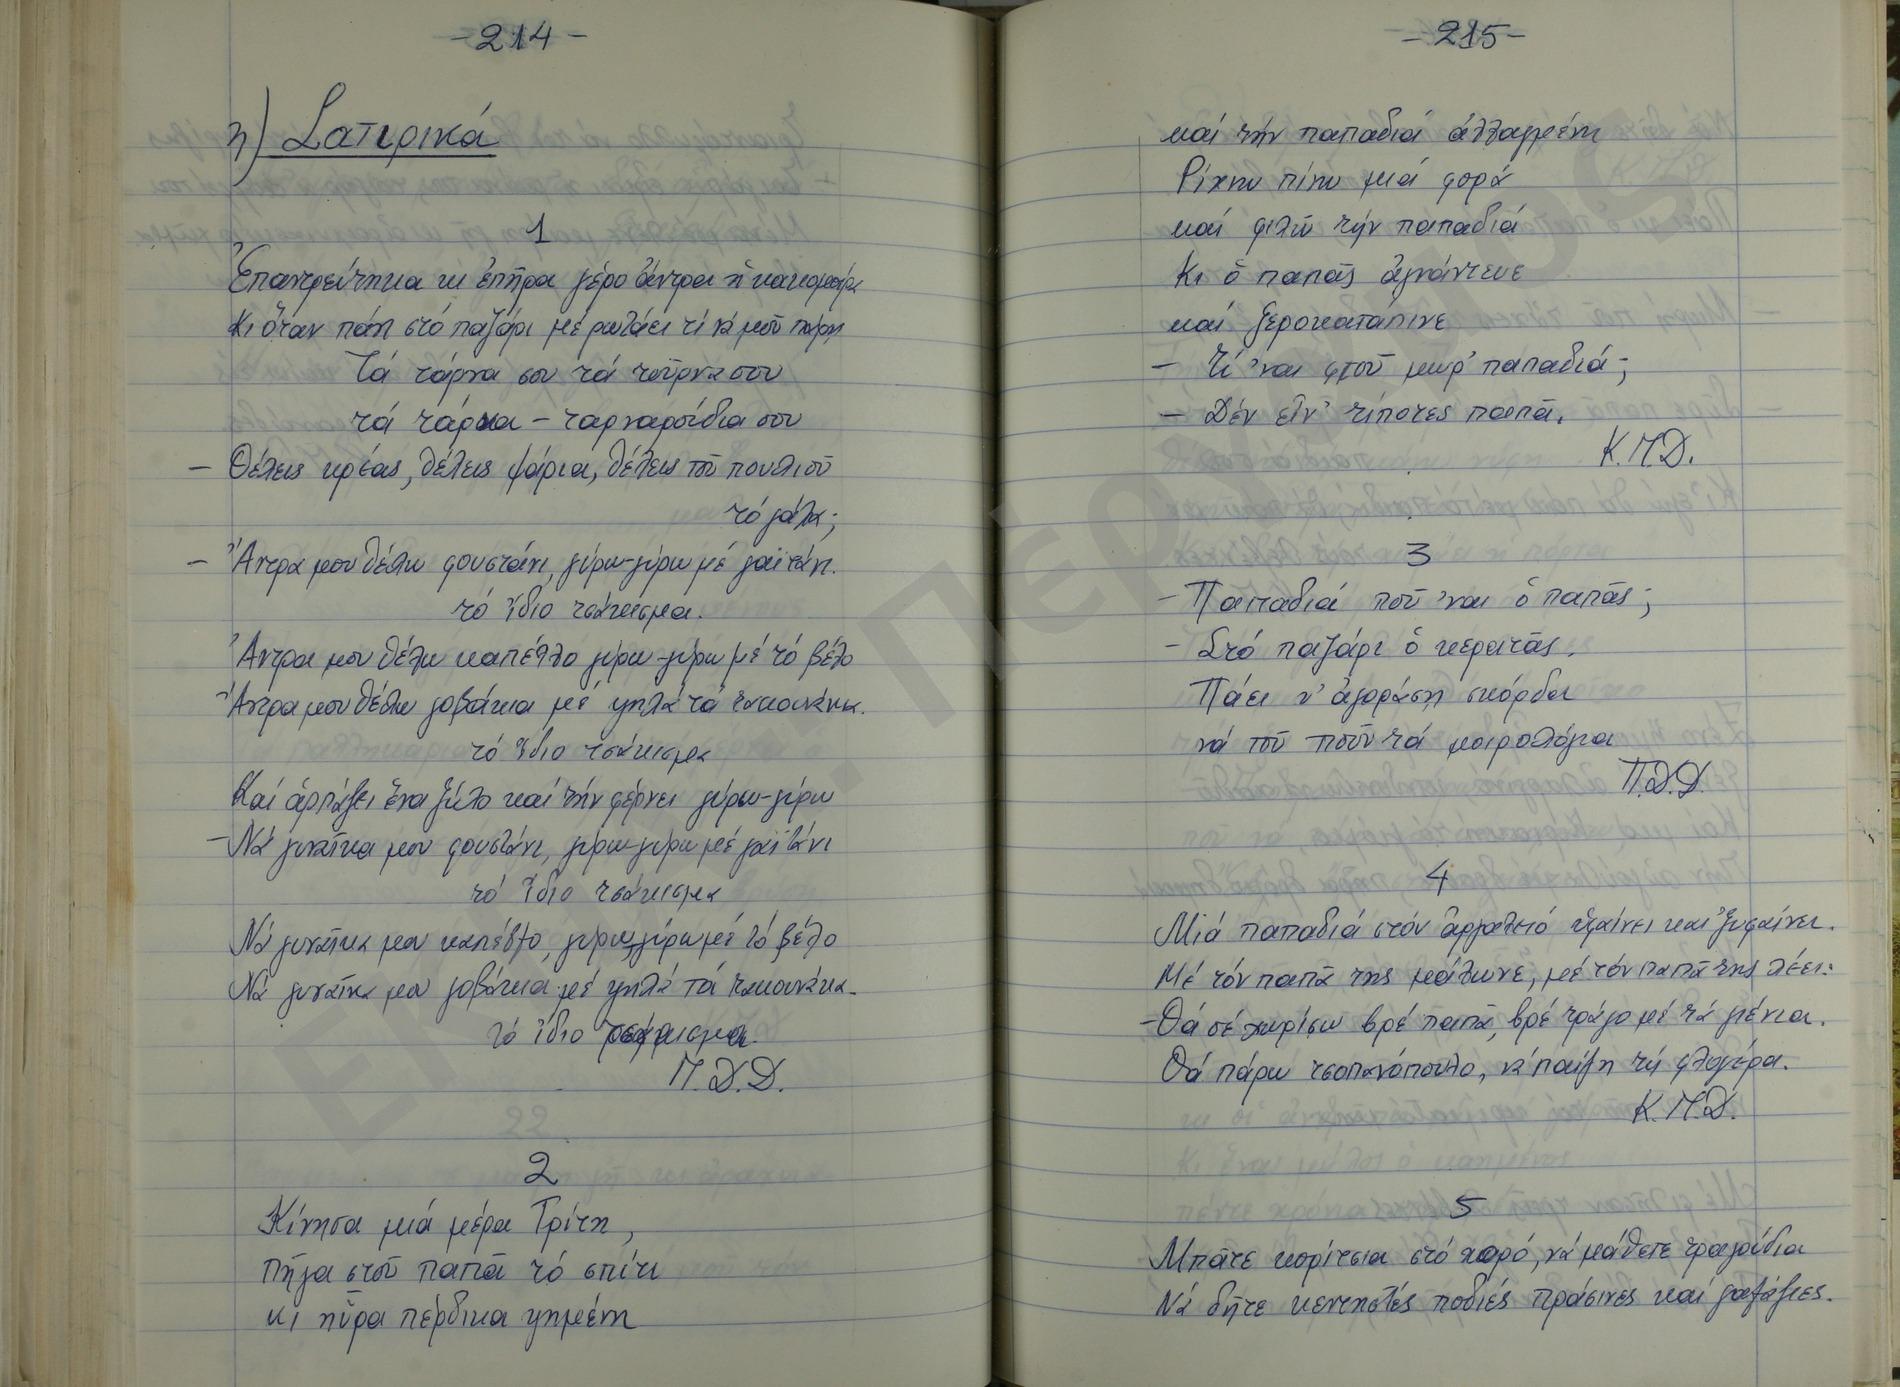 -214-
η) Σατιρικά
1
Ἐπαντρεύτηκα κι ἐπῆρα γέρο ἄντρα ἡ κακομοίρα
Κι ὅταν πάη στό παζάρι μέ ρωτάει τί νά μοῦ πάρη
Τά τάρνα σου τά τούρνα σου
τά τάρνα - ταρναρσίδια σου
- Θέλεις κρέας, θέλεις ψάρια, θέλεις τοῦ πουλιοῦ
τό γάλα;
- Ἄντρα μου θέλω φουστάνι, γύρω-γύρω μέ γαϊτάνι.
τό ἴδιο τσάκισμα.
Ἄντρα μου θέλω καπέλλο γύρω-γύρω μέ τό βέλο
- Ἄντρα μου θέλω γοβάκια μέ ψηλά τά τακουνάκια.
τό ἴδιο τσάκισμα
Καί ἁρπάζει ἕνα ξύλο καί τήν φέρνει γύρω-γύρω
- Νά γυναῖκα μου φουστάνι, γύρω-γύρω μέ γαϊτάνι
τό ἴδιο τσάκισμα
Νά γυναῖκα μου καπέλλο, γύρω-γύρω μέ τό βέλο
Νά γυναῖκα μου γοβάκια μέ ψηλά τά τακουνάκια.
τό ἴδιο τσάκισμα.
Π.Δ.Δ.
2
Κίνησα μιά μέρα Τρίτη,
πῆγα στοῦ παπᾶ τό σπίτι
κι ηὗρα πέρδικα ψημένη
-215-
καί τήν παπαδιά ἀλλαγμένη
Ρίχνω πίνω μιά φορά
καί φιλῶ τήν παπαδιά
Κι ὁ παπᾶς ἀγνάντευε
καί ξεροκατάπινε
- Τί 'ναι φτοῦ μωρ' παπαδιά;
- Δέν εἶν' τίποτες παπᾶ.
Κ.Π.Δ.
3
- Παπαδιά ποῦ 'ναι ὁ παπᾶς;
- Στό παζάρι ὁ κερατᾶς.
Πάει ν' ἀγοράση σκόρδα
νά τοῦ ποῦν τά μοιρολόγια
Π.Δ.Δ.
4
Μιά παπαδιά στόν ἀργαλειό ὑφαίνει καί ξυφαίνει.
Μέ τόν παπᾶ της μάλωνε, μέ τόν παπᾶ της λέει:
- Θά σέ χωρίσω βρέ παπᾶ, βρέ τράγο μέ τά γένια.
Θά πάρω τσοπανόπουλο, νά παίζη τή φλογέρα.
Κ.Π.Δ.
5
Μπᾶτε κορίτσια στό χορό, νά μάθετε τραγούδια
Νά δῆτε κεντηστές ποδιές πράσινες καί γαλάζιες.